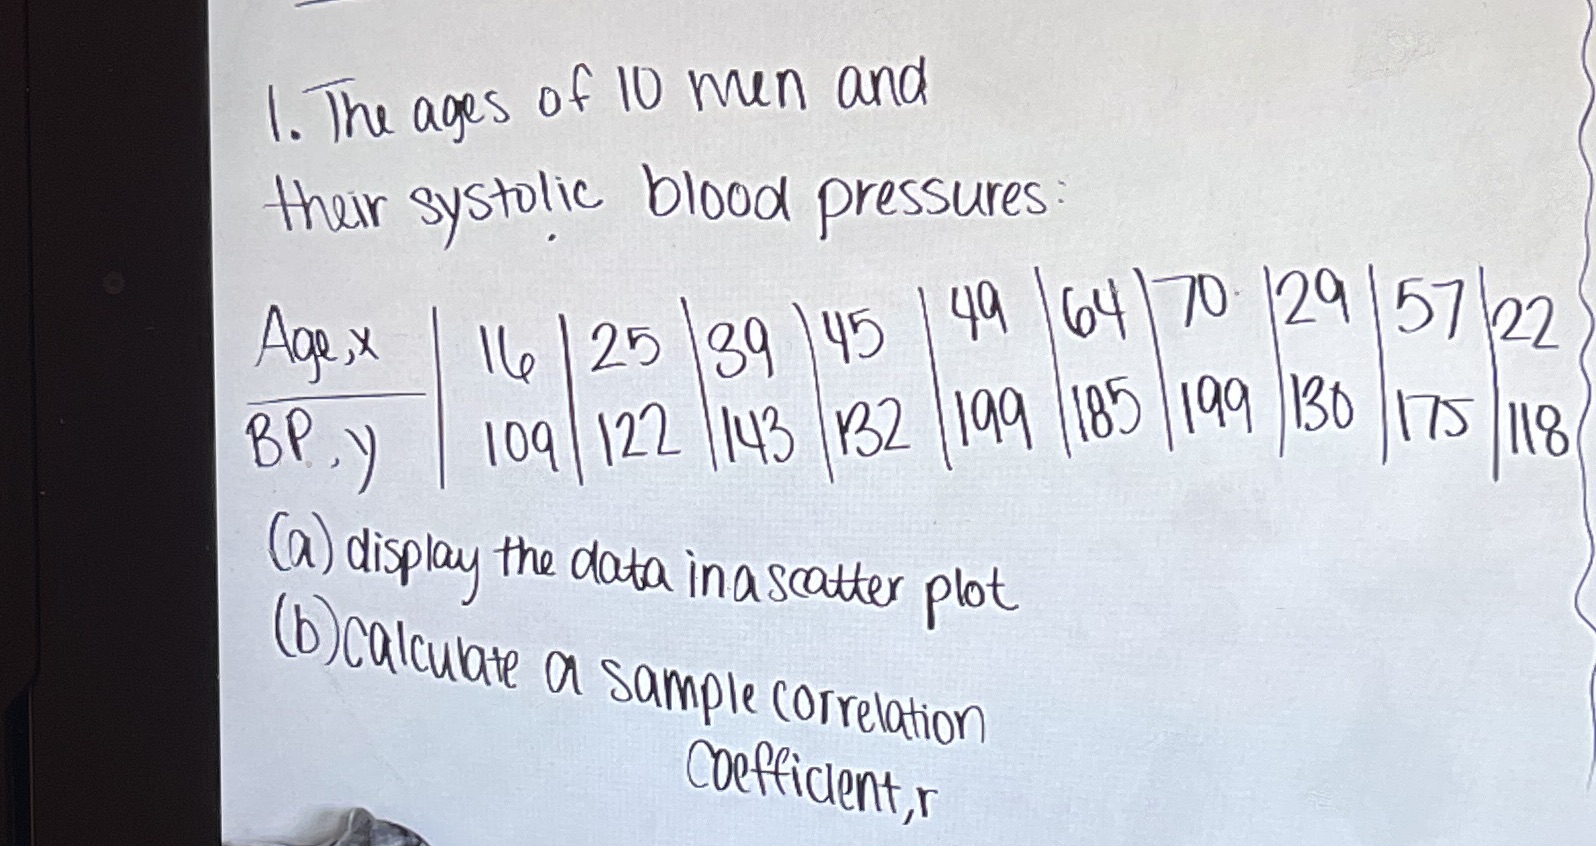 1. The ages of 10 men and
their systolic blood pressures:
Age, x | 16 | 25 | 39 | 45 | 49 | 64 | 70 | 29 | 57 | 22
BP, y | 109 | 122 | 143 | 132 | 199 | 185 | 199 | 130 | 175 | 118
(a) display the data in a scatter plot
(b) calculate a sample correlation
coefficient, r